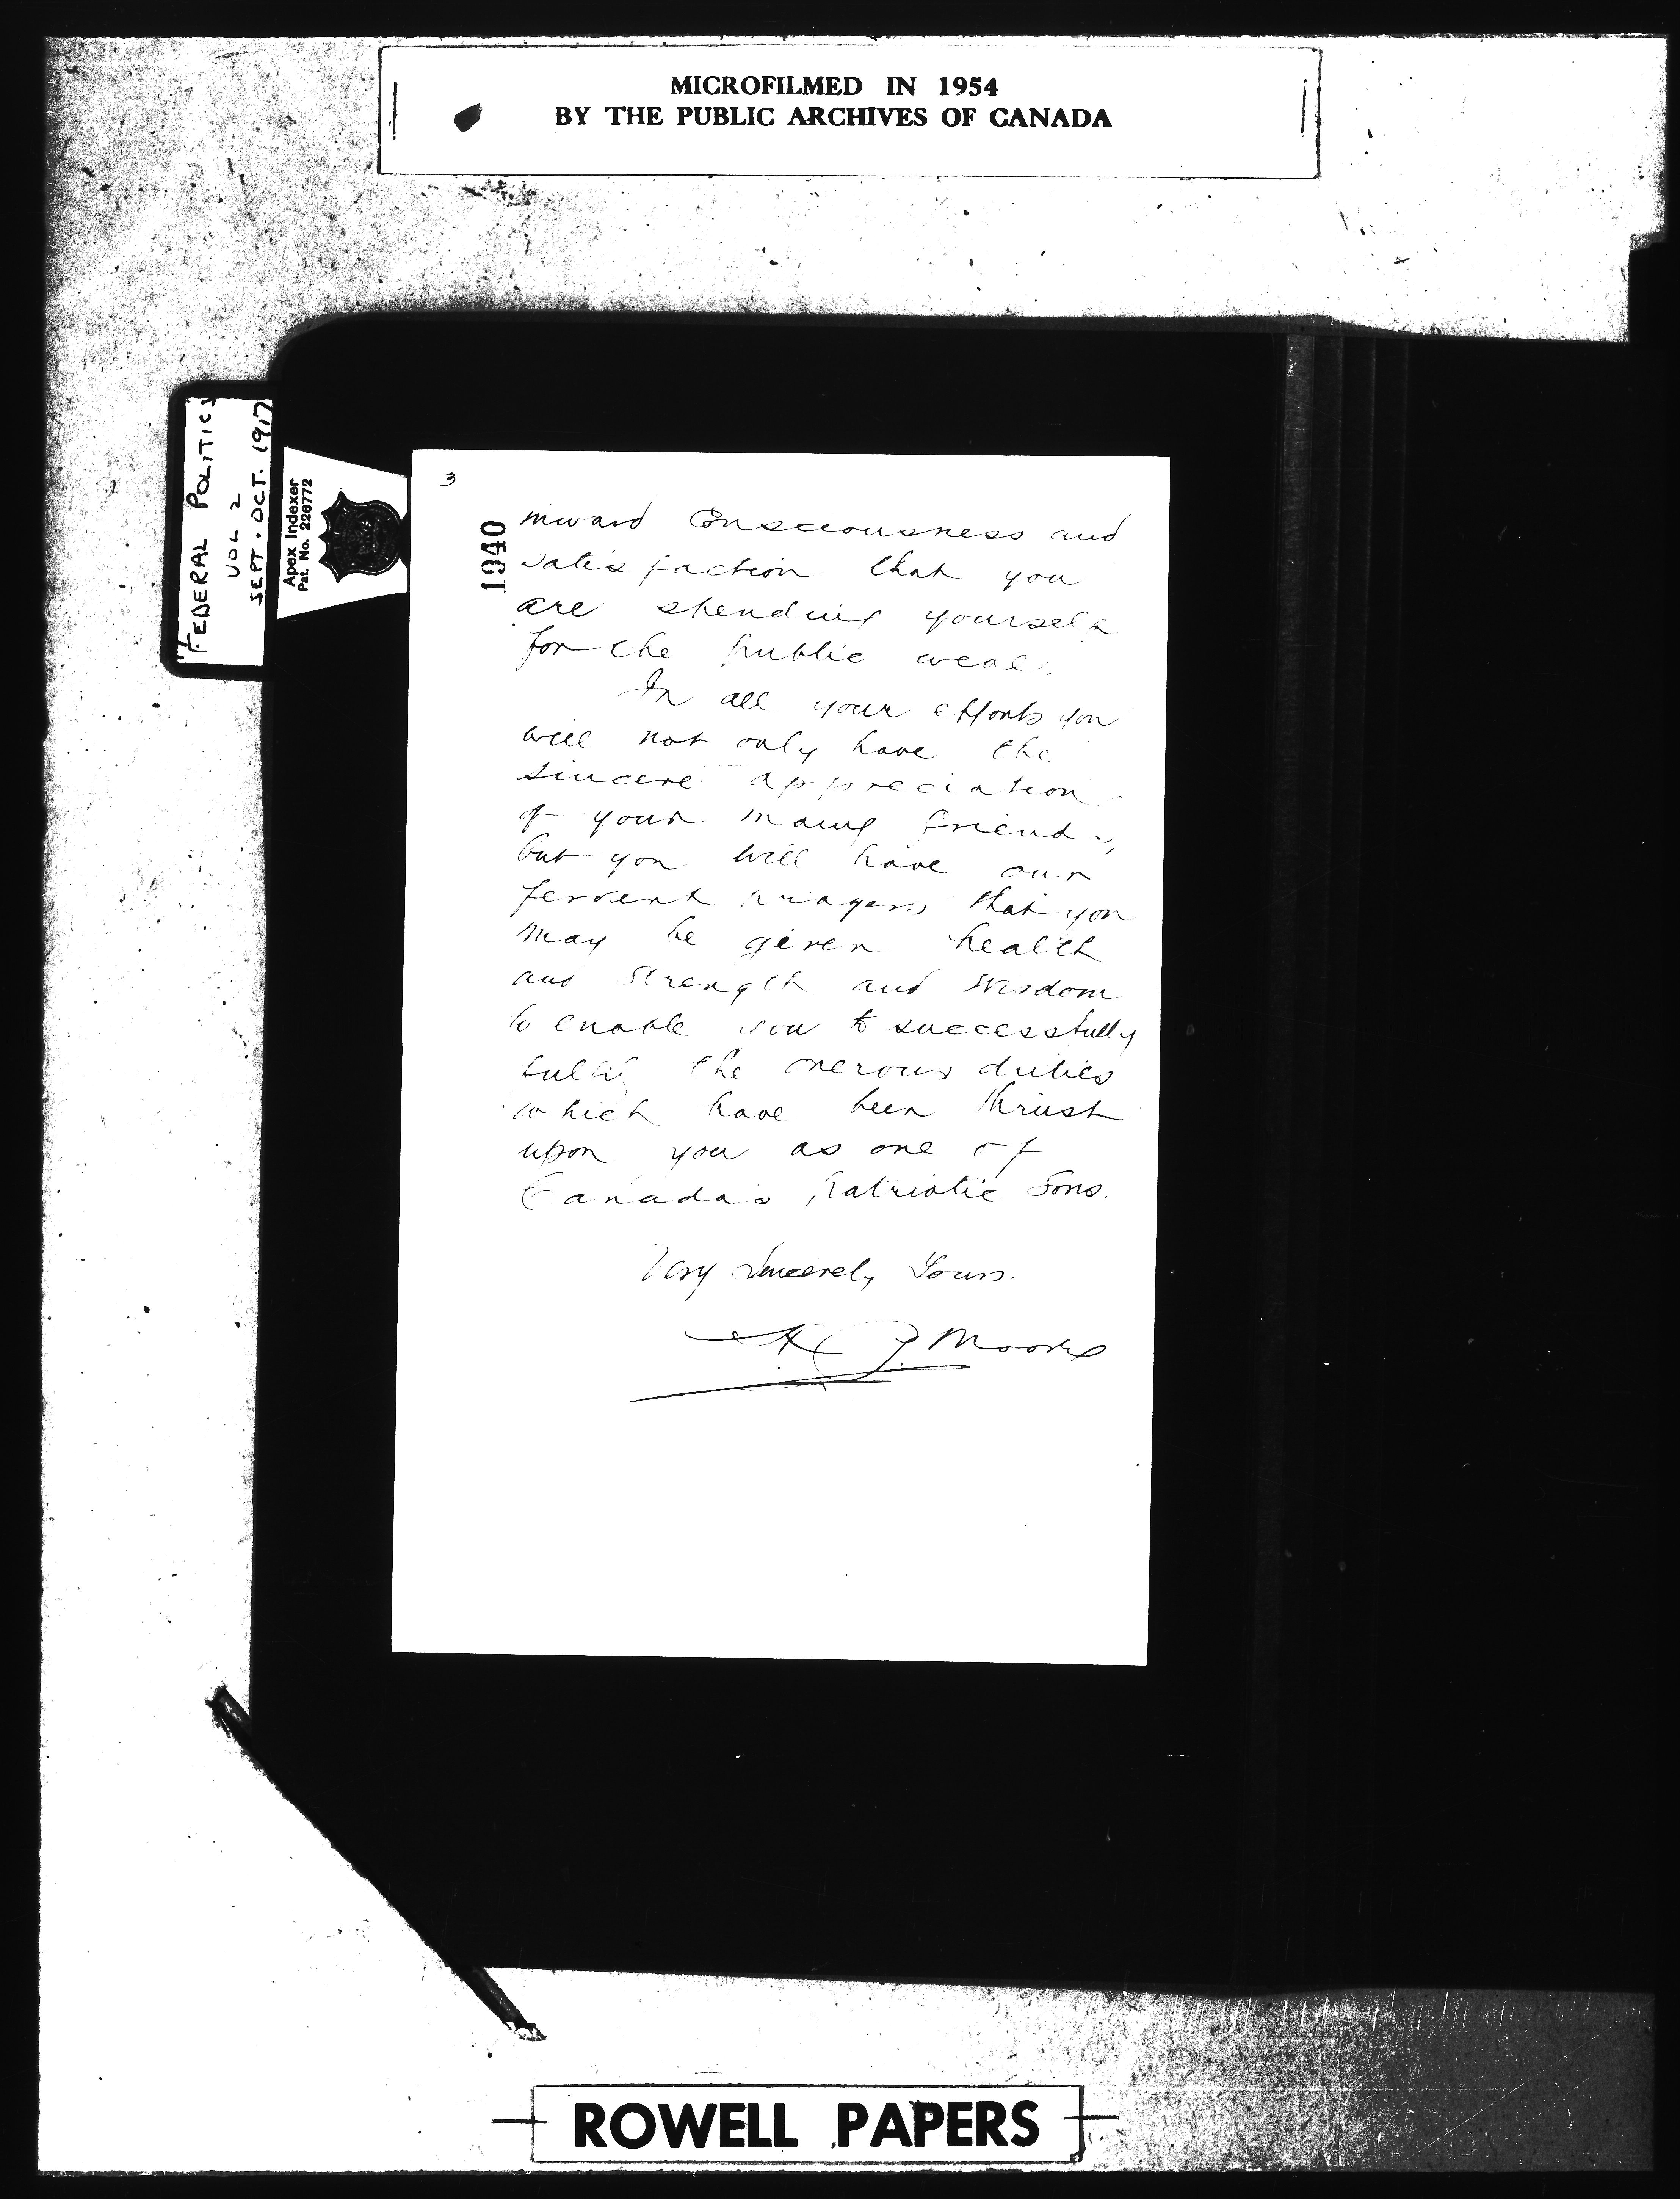 MICROFILMED IN 1954
BY THE PUBLIC ARCHIVES OF CANADA
FEDERAL POLITICS
VOL 2
SEPT. OCT. 1917
Apex Indexer
Pat. No. 226772
3
1940
inward Consciousness and
satisfaction that you
are spending yourself
for the public weal.
In all your efforts you
will not only have the
sincere appreciation
of your many friends,
but you will have our
fervent prayers that you
may be given health
and strength and wisdom
to enable you to successfully
fulfil the onerous duties
which have been thrust
upon you as one of
Canada's Patriotic Sons.
Very Sincerely Yours.
Moore
ROWELL PAPERS